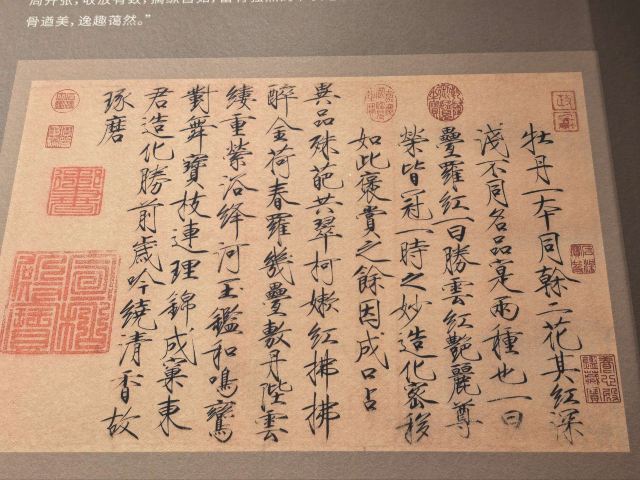 收放有致，
骨遒美，逸趣蔼然。”
牡丹一本同幹二花其紅深
淺不同名品寔兩種也一曰
疊羅紅一曰勝雲紅艷麗尊
榮皆冠一時之妙造化密移
如此褒賞之餘因成口占
異品殊葩共翠柯嫩紅拂拂
醉金荷春羅幾疊敷丹陛雲
縷重縈浴絳河玉鑑和鳴鸞
對舞寶枝連理錦成窠東
君造化勝前歲吟繞清香故
琢磨